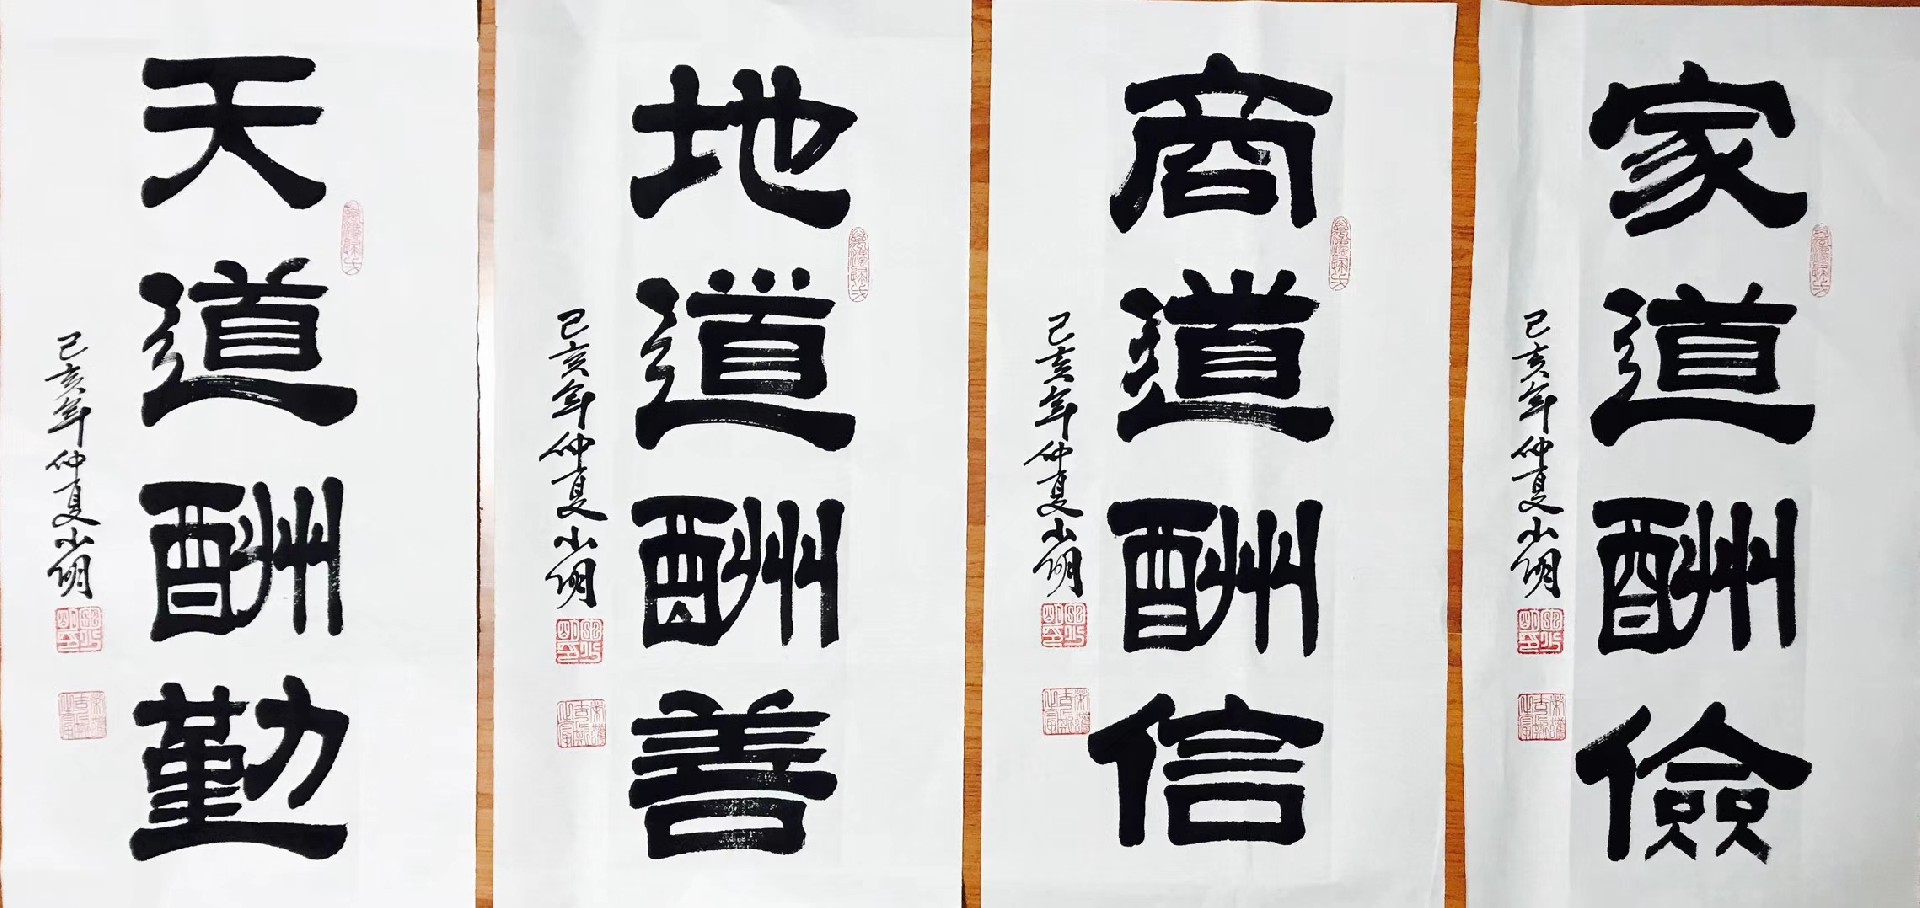 天道酬勤
己亥年仲夏小明
地道酬善
己亥年仲夏小明
商道酬信
己亥年仲夏小明
家道酬儉
己亥年仲夏小明